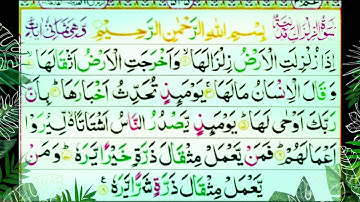 سورة الزلزال مدنية بسم الله الرحمن الرحيم وهي ثماني آيات
إِذَا زُلْزِلَتِ الْأَرْضُ زِلْزَالَهَا ۝ وَأَخْرَجَتِ الْأَرْضُ أَثْقَالَهَا ۝
وَقَالَ الْإِنْسَانُ مَا لَهَا ۝ يَوْمَئِذٍ تُحَدِّثُ أَخْبَارَهَا ۝ بِأَنَّ
رَبَّكَ أَوْحَى لَهَا ۝ يَوْمَئِذٍ يَصْدُرُ النَّاسُ أَشْتَاتًا ۝ لِيُرَوْا
أَعْمَالَهُمْ ۝ فَمَنْ يَعْمَلْ مِثْقَالَ ذَرَّةٍ خَيْرًا يَرَهُ ۝ وَمَنْ
يَعْمَلْ مِثْقَالَ ذَرَّةٍ شَرًّا يَرَهُ ۝